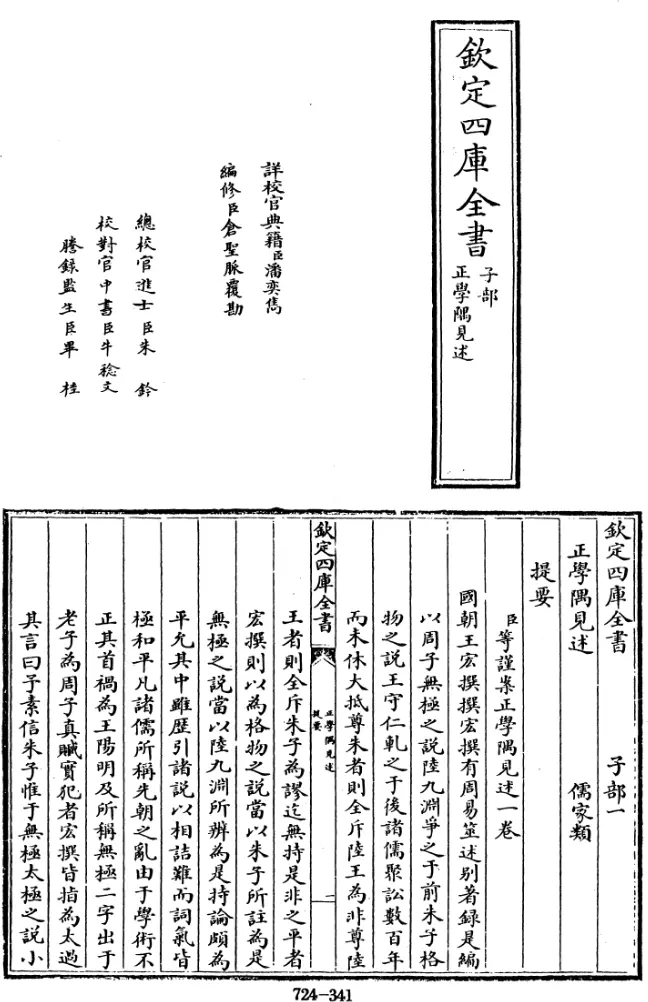 欽定四庫全書
子部
正學隅見述
詳校官典籍臣潘奕雋
編修臣倉聖脈覆勘
總校官進士臣朱鈐
校對官中書臣牛稔文
謄錄監生臣畢桂
欽定四庫全書 子部一
正學隅見述 儒家類
提要
臣等謹案正學隅見述一卷
國朝王宏撰撰宏撰有周易筮述别著録是編
以周子無極之說陸九淵爭之于前朱子格
物之說王守仁軋之于後諸儒聚訟數百年
而未休大抵尊朱者則全斥陸王為非尊陸
欽定四庫全書
正學隅見述
提要
一
王者則全斥朱子為謬迄無持是非之平者
宏撰則以為格物之說當以朱子所註為是
無極之說當以陸九淵所辨為是持論頗為
平允其中雖歴引諸説以相詰難而詞氣皆
極和平凡諸儒所稱先朝之亂由于學術不
正其首禍為王陽明及所稱無極二字出于
老子為周子真贓實犯者宏撰皆指為太過
其言曰予素信朱子惟于無極太極之説小
724-341